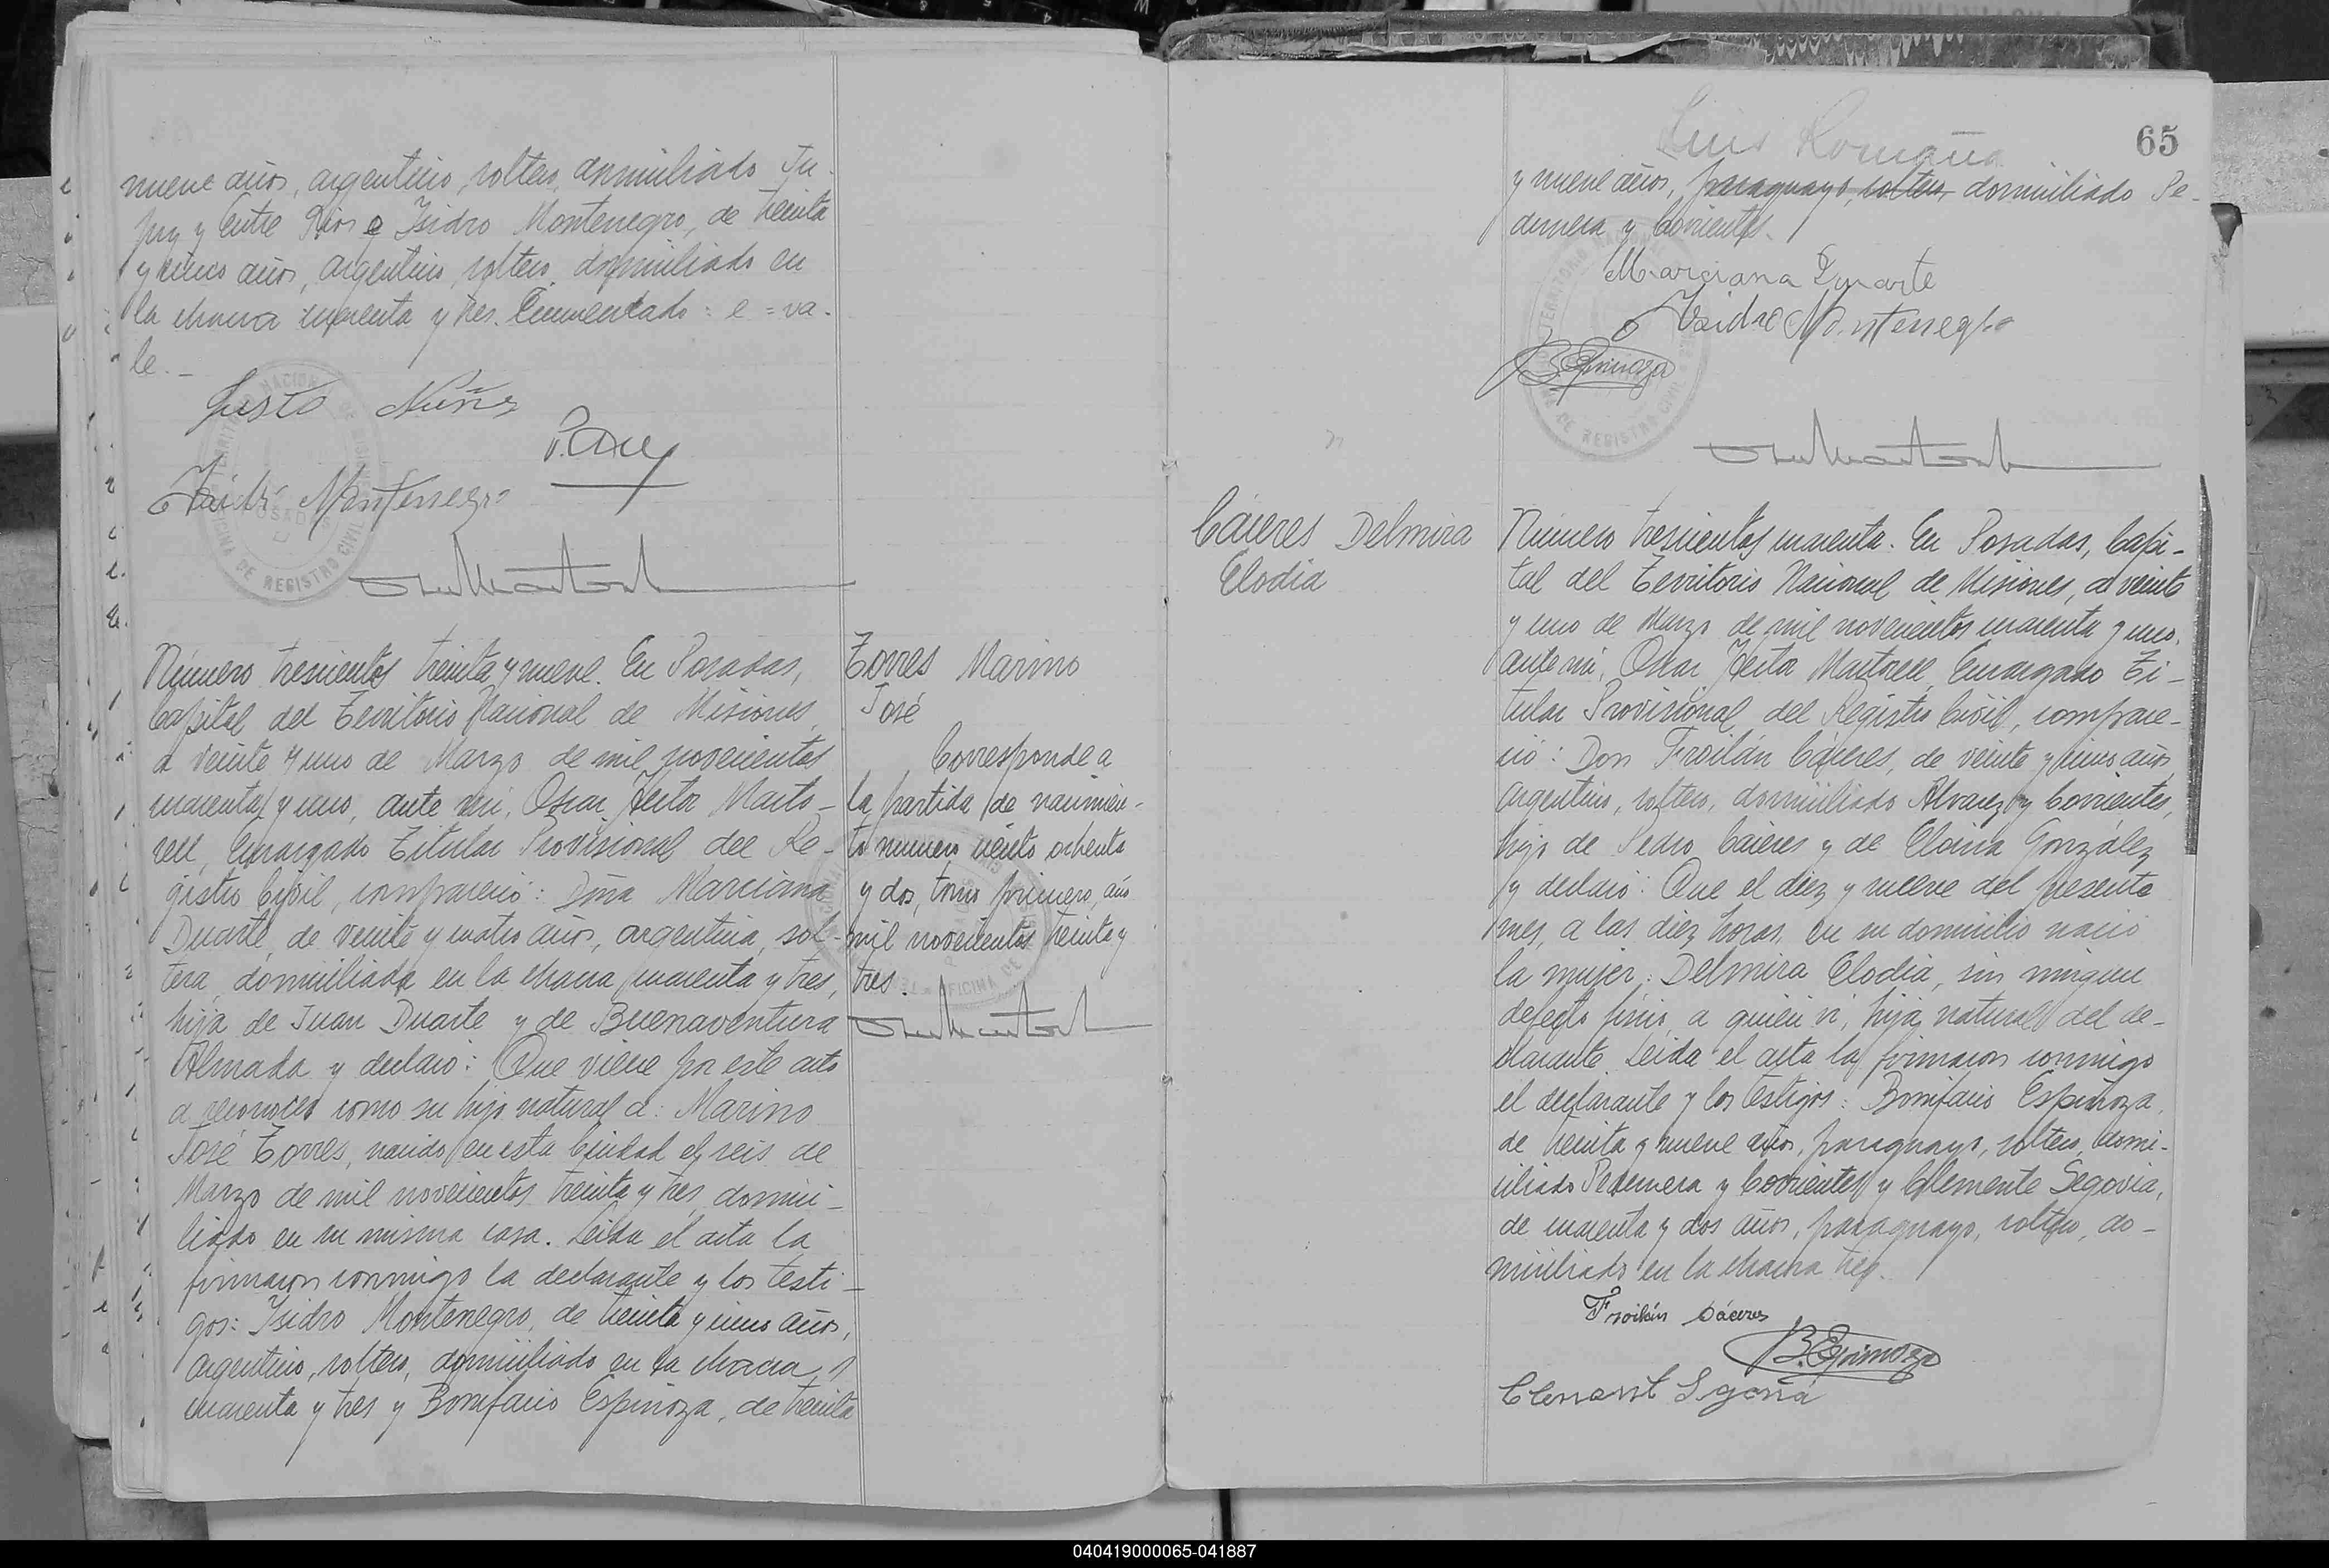 nueve años, argentino, soltero, domiciliado Ju-
juy y Entre Rios e Isidro Montenegro, de treinta
y cinco años, argentino, soltero, domiciliado en
la chacra cuarenta y tres. Enmendado: e = va-
le.-
Justo Nuñez
Isidro Montenegro
Número trescientos treinta y nueve. En Posadas,
Capital del Territorio Nacional de Misiones,
a veinte y uno de Marzo de mil novecientos
cuarenta y uno, ante mi, Oscar Hector Marto-
rell, Encargado Titular Provisional del Re-
gistro Civil, compareció: Doña Marciana
Duarte, de veinte y cuatro años, argentina, sol-
tera, domiciliada en la chacra cuarenta y tres,
hija de Juan Duarte y de Buenaventura
Almada y declaró: Que viene por este acto
a reconocer como su hijo natural a: Marino
José Torres, nacido en esta Ciudad el seis de
Marzo de mil novecientos treinta y tres, domici-
liado en su misma casa. Leida el acta la
firmaron conmigo la declarante y los testi-
gos: Isidro Montenegro, de treinta y cinco años,
argentino, soltero, domiciliado en la chacra
cuarenta y tres y Bonifacio Espinoza, de treinta
Torres Marino
José
Corresponde a
la partida de nacimien-
to numero ciento ochenta
y dos, tomo primero, año
mil novecientos treinta y
tres.
65
Luis Romaña
y nueve años, paraguayo, soltero, domiciliado Pe-
dernera y Corrientes.
Marciana Duarte
Isidro Montenegro
B. Espinoza
Cáceres Delmira
Elodia
Número trescientos cuarenta. En Posadas, Capi-
tal del Territorio Nacional de Misiones, a veinte
y uno de Marzo de mil novecientos cuarenta y uno,
ante mi, Oscar Hector Martorell, Encargado Ti-
tular Provisional del Registro Civil, compare-
ció: Don Froilán Cáceres, de veinte y cinco años,
argentino, soltero, domiciliado Alvarez y Corrientes,
hijo de Pedro Cáceres y de Elovia González
y declaró: Que el diez y nueve del presente
mes, a las diez horas, en su domicilio nació
la mujer: Delmira Elodia, sin ningun
defecto físico, a quien vi, hija natural del de-
clarante. Leida el acta la firmaron conmigo
el declarante y los testigos: Bonifacio Espinoza,
de treinta y nueve años, paraguayo, soltero, domi-
ciliado Pedernera y Corrientes y Clemente Segovia,
de cuarenta y dos años, paraguayo, soltero, do-
miciliado en la chacra tres.
Froilán Cáceres
B. Espinoza
Clement Segovia
040419000065-041887